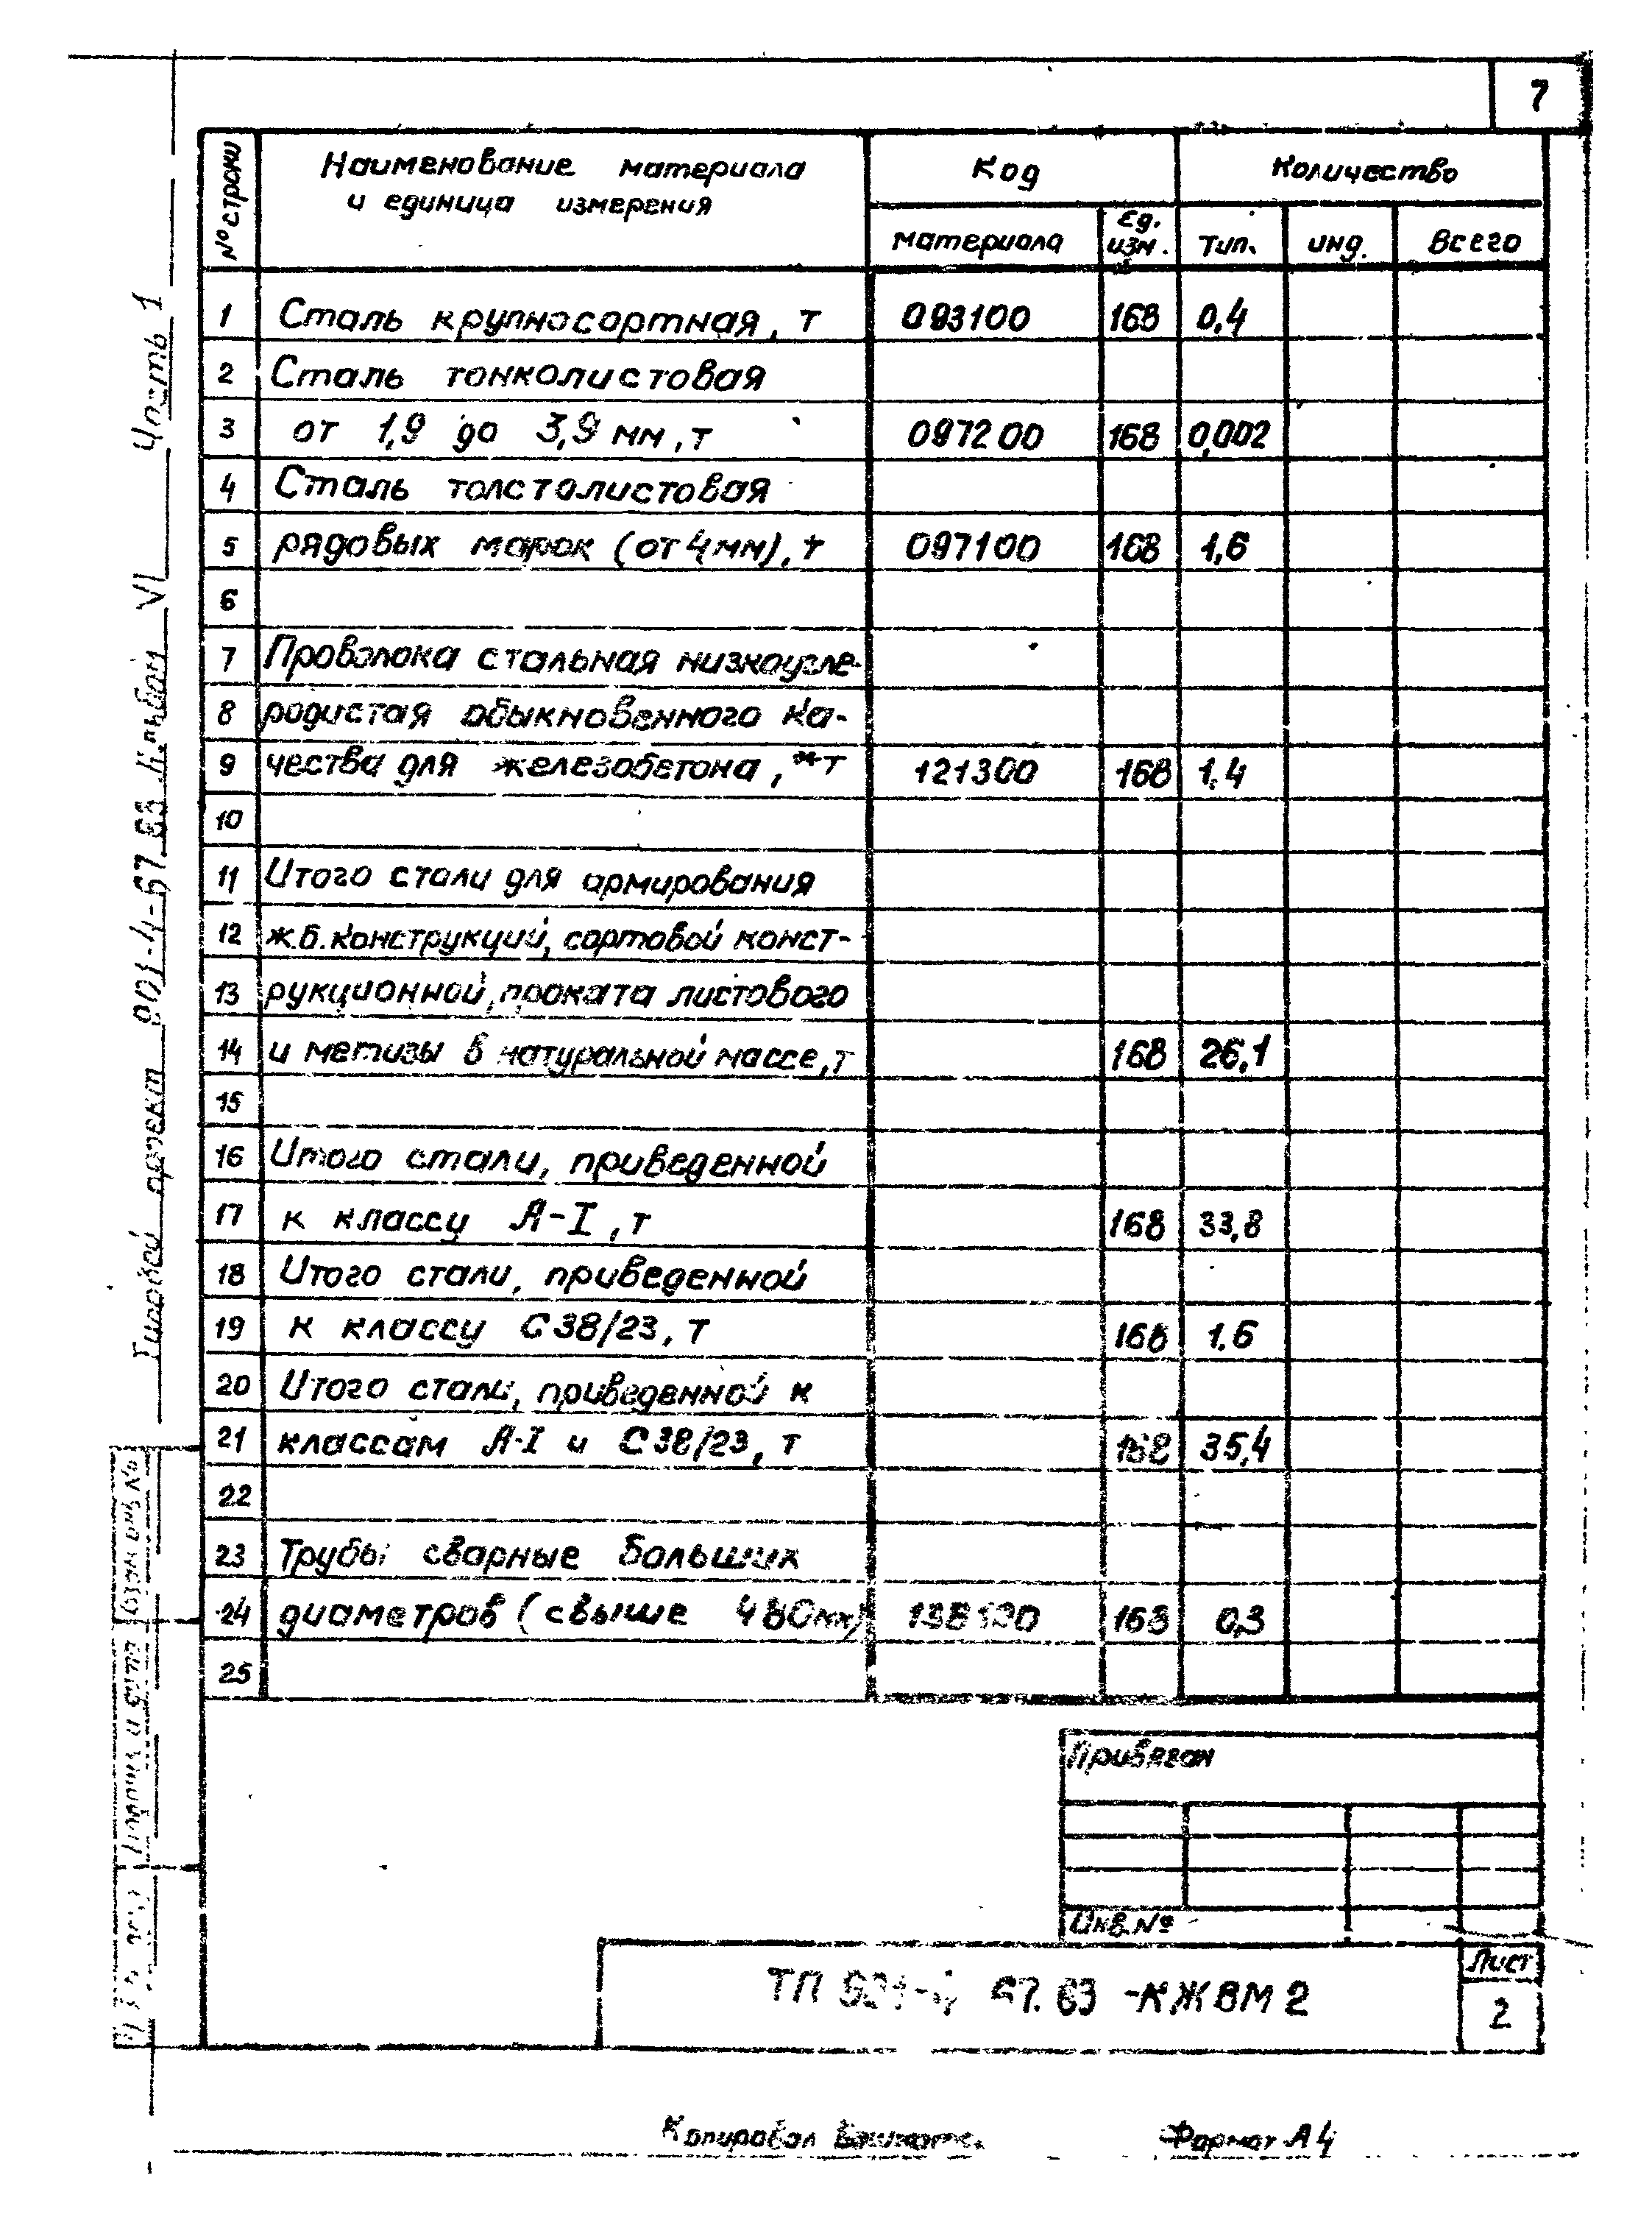 7
№ строки
Наименование материала
и единица измерения
Код
Количество
материала
Ед.
изм.
Тип.
инд.
Всего
1 Сталь крупносортная, т 093100 168 0,4
2 Сталь тонколистовая
3 от 1,9 до 3,9 мм, т 097200 168 0,002
4 Сталь толстолистовая
5 рядовых марок (от 4 мм), т 097100 168 1,6
6
7 Проволока стальная низкоугле-
8 родистая обыкновенного ка-
9 чества для железобетона, *т 121300 168 1.4
10
11 Итого стали для армирования
12 ж.б. конструкций, сортовой конст-
13 рукционной, проката листового
14 и метизы в натуральной массе, т 168 26,1
15
16 Итого стали, приведенной
17 к классу А-I, т 168 33,8
18 Итого стали, приведенной
19 к классу С38/23, т 168 1.6
20 Итого стали, приведенной к
21 классам А-I и С38/23, т 168 35,4
22
23 Трубы сварные больших
24 диаметров (свыше 480мм) 168 0,3
25
Типовой проект 901-4-67.83 Альбом VI Часть 1
Взам инв №
Подпись и дата
Привязан
Инв.№
ТП 67.83 -КЖВМ2
Лист
2
Копировал
Формат А4